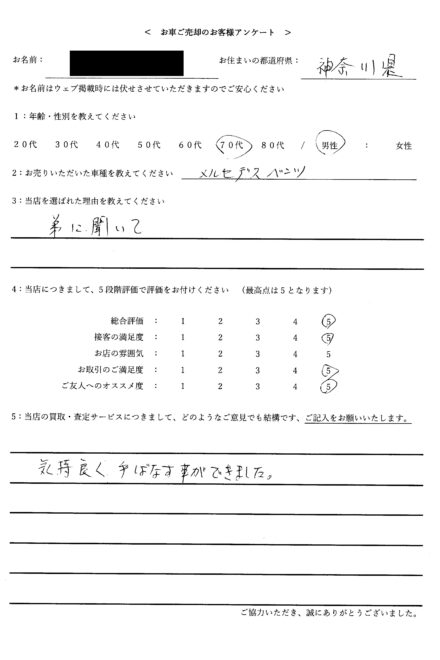 ＜　お車ご売却のお客様アンケート　＞
お名前： お住まいの都道府県： 神奈川県
＊お名前はウェブ掲載時には伏せさせていただきますのでご安心ください
1：年齢・性別を教えてください
20代 30代 40代 50代 60代 70代 80代 / 男性 ： 女性
2：お売りいただいた車種を教えてください メルセデス ベンツ
3：当店を選ばれた理由を教えてください
弟に聞いて
4：当店につきまして、5段階評価で評価をお付けください （最高点は5となります）
総合評価 ： 1 2 3 4 5
接客の満足度 ： 1 2 3 4 5
お店の雰囲気 ： 1 2 3 4 5
お取引のご満足度 ： 1 2 3 4 5
ご友人へのオススメ度 ： 1 2 3 4 5
5：当店の買取・査定サービスにつきまして、どのようなご意見でも結構です、ご記入をお願いいたします。
気持良く手ばなす事ができました。
ご協力いただき、誠にありがとうございました。